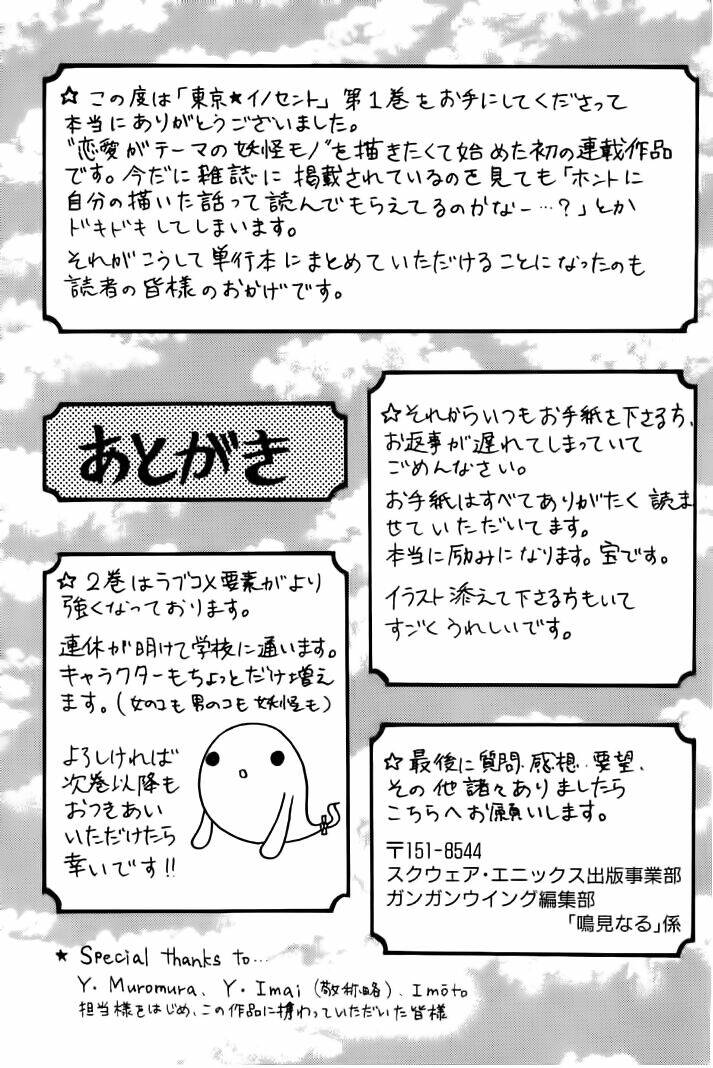 ☆この度は「東京★イノセント」第1巻をお手にしてくださって
本当にありがとうございました。
"恋愛がテーマの妖怪モノ"を描きたくて始めた初の連載作品
です。今だに雑誌に掲載されているのを見ても「ホントに
自分の描いた話って読んでもらえてるのかなー…?」とか
ドキドキしてしまいます。
それがこうして単行本にまとめていただけることになったのも
読者の皆様のおかげです。
あとがき
☆それからいつもお手紙を下さる方、
お返事が遅れてしまっていて
ごめんなさい。
お手紙はすべてありがたく読ま
せていただいてます。
本当に励みになります。宝です。
イラスト添えて下さる方もいて
すごくうれしいです。
☆2巻はラブコメ要素がより
強くなっております。
連休が明けて学校に通います。
キャラクターもちょっとだけ増え
ます。(女のコも男のコも妖怪も)
よろしければ
次巻以降も
おつきあい
いただけたら
幸いです!!
☆最後に質問、感想、要望、
その他諸々ありましたら
こちらへお願いします。
〒151-8544
スクウェア・エニックス出版事業部
ガンガンウイング編集部
「鳴見なる」係
★ Special thanks to…
Y. Muromura、Y. Imai(敬称略)、Imōto
担当様をはじめ、この作品に携わっていただいた皆様